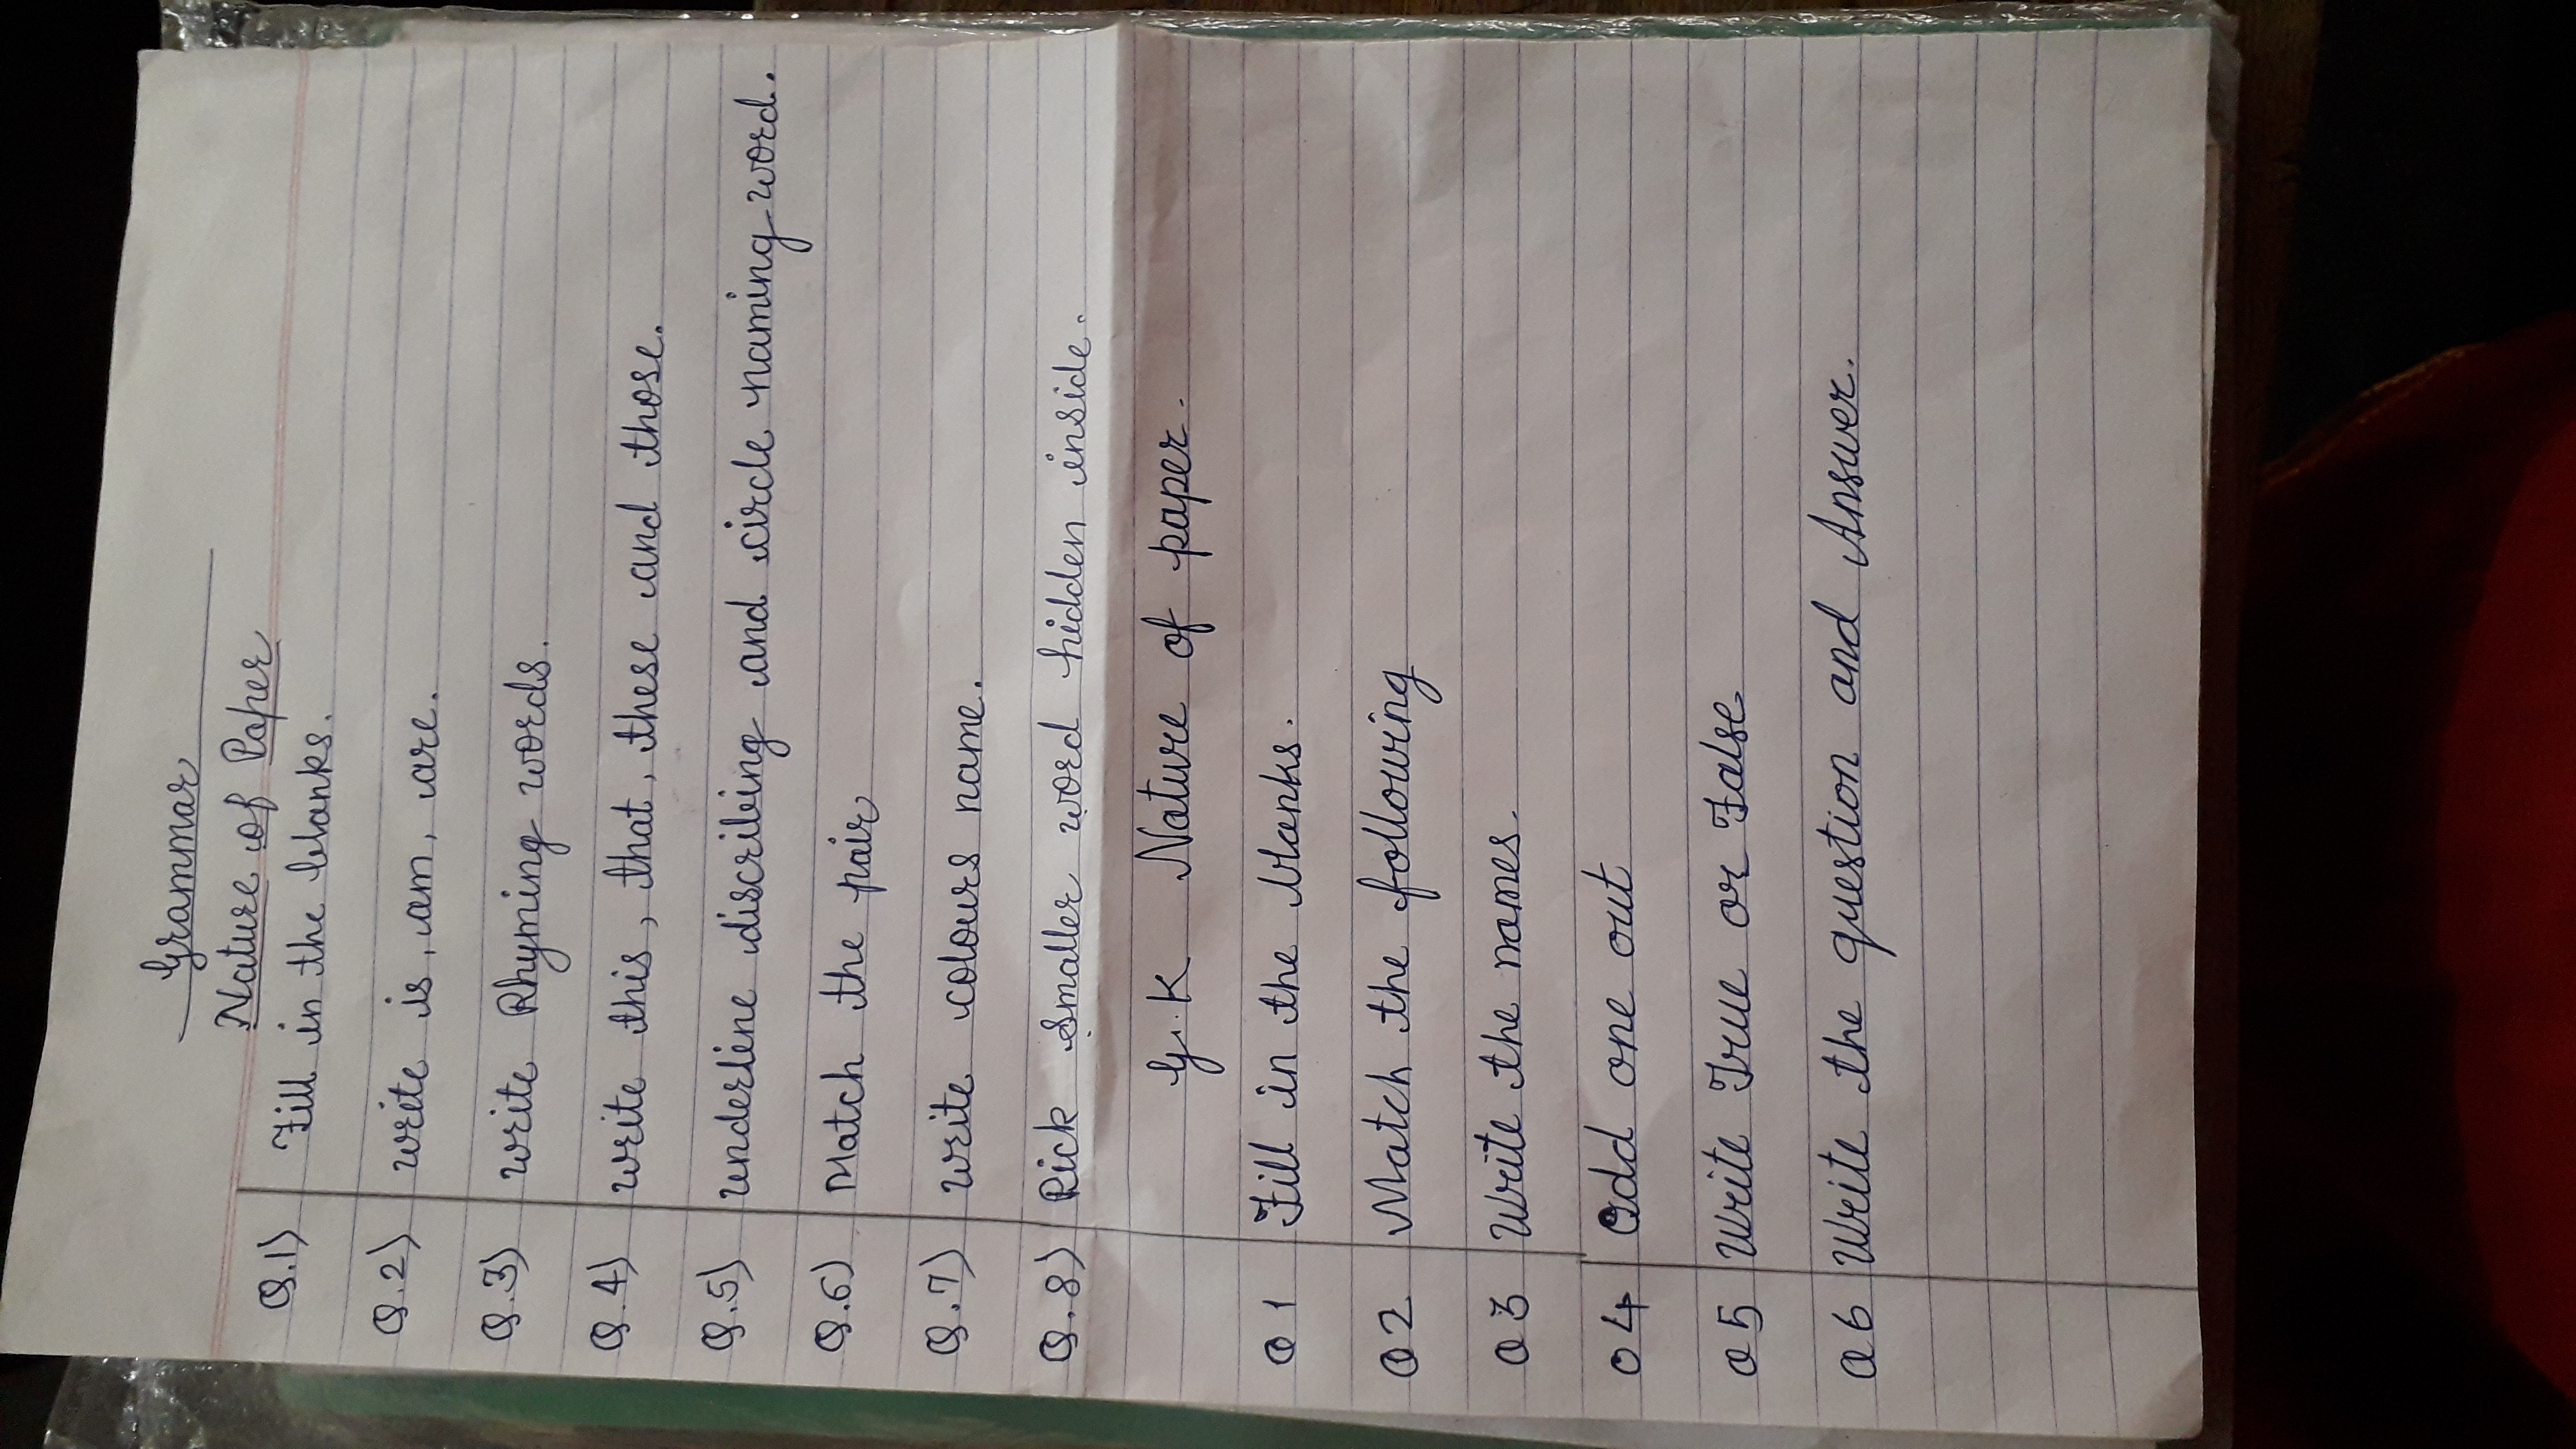 Grammar
Nature of Paper
Q.1) Fill in the blanks.
Q.2) write is, am, are.
Q.3) write Rhyming words.
Q.4) write this, that, these and those.
Q.5) underline discribing and circle naming word.
Q.6) Match the pair
Q.7) write colours name.
Q.8) Pick smaller word hidden inside.
G.K Nature of paper.
Q1 Fill in the blanks.
Q2 Match the following
Q3 Write the names.
Q4 Odd one out
Q5 Write True or False
Q6 Write the question and Answer.